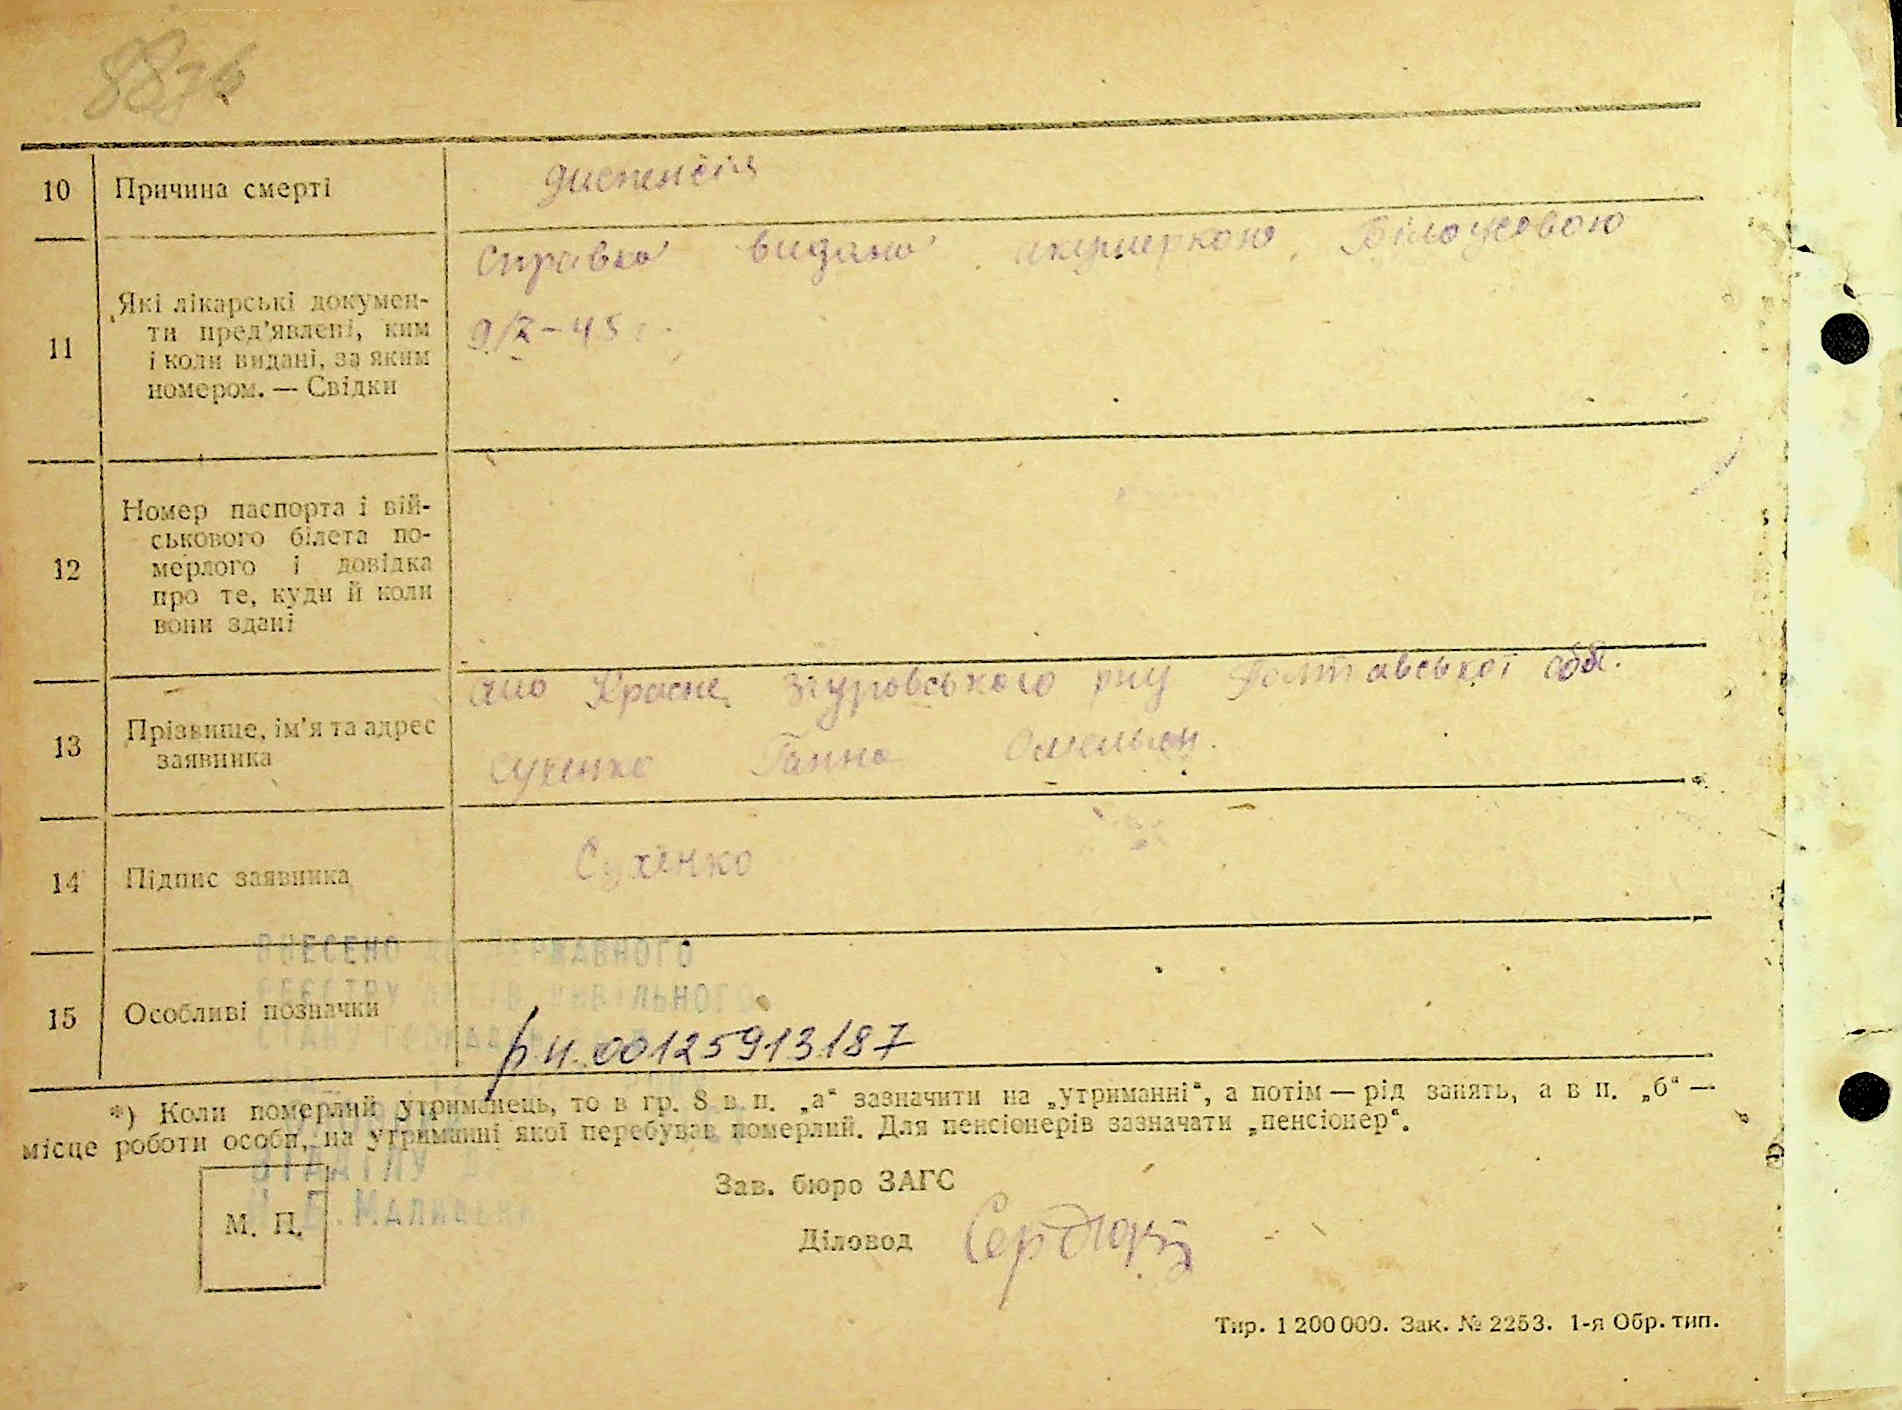 10 Причина смерті диспенсія
11 Які лікарські докумен-
ти пред'явлені, ким
і коли видані, за яким
номером. — Свідки
Справка видана акушеркою Білоусовою
9/X-45 г.
12 Номер паспорта і вій-
ськового білета по-
мерлого і довідка
про те, куди й коли
вони здані
13 Прізвище, ім'я та адрес
заявника
село Красне, Згуровського р-ну Полтавської обл.
Сухенко Ганна Омельян.
14 Підпис заявника Сухенко
ВНЕСЕНО ДО ДЕРЖАВНОГО
РЕЄСТРУ АКТІВ ЦИВІЛЬНОГО
СТАНУ ГРОМАДЯН
15 Особливі позначки
р.н. 00125913187
*) Коли померлий утриманець, то в гр. 8 в п. „а“ зазначити на „утриманні“, а потім — рід занять, а в п. „б“ —
місце роботи особи, на утриманні якої перебував померлий. Для пенсіонерів зазначати „пенсіонер“.
ВІДДІЛУ
М. П.
Зав. бюро ЗАГС
Діловод
Тир. 1 200 000. Зак. № 2253. 1-я Обр. тип.